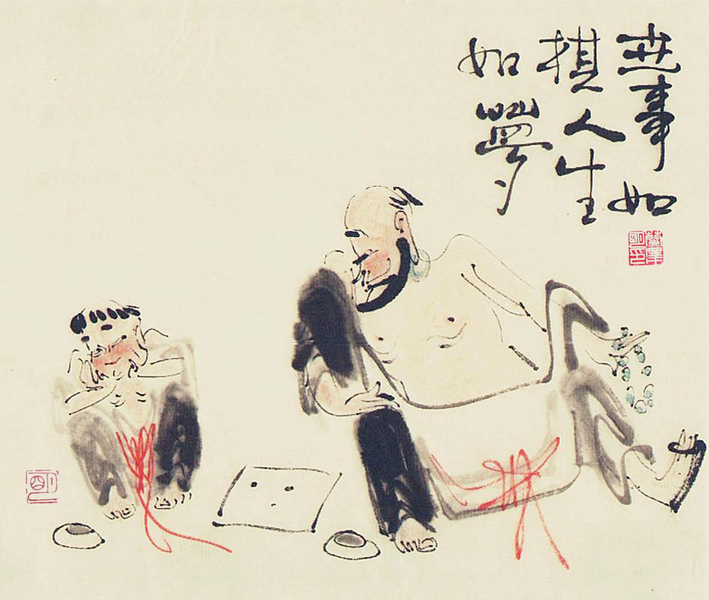 世事如
棋人生
如夢